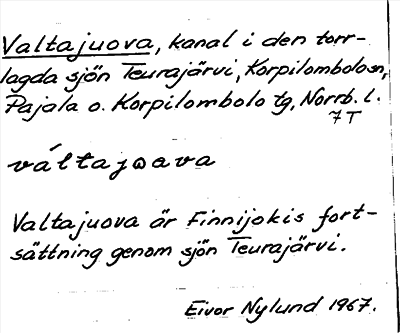 Valtajuova, kanal i den torr-
lagda sjön Teurajärvi, Korpilombolo sn,
Pajala o. Korpilombolo tg, Norrb. l.
7T
váltajɷava
Valtajuova är Finnijokis fort-
sättning genom sjön Teurajärvi.
Eivor Nylund 1967.